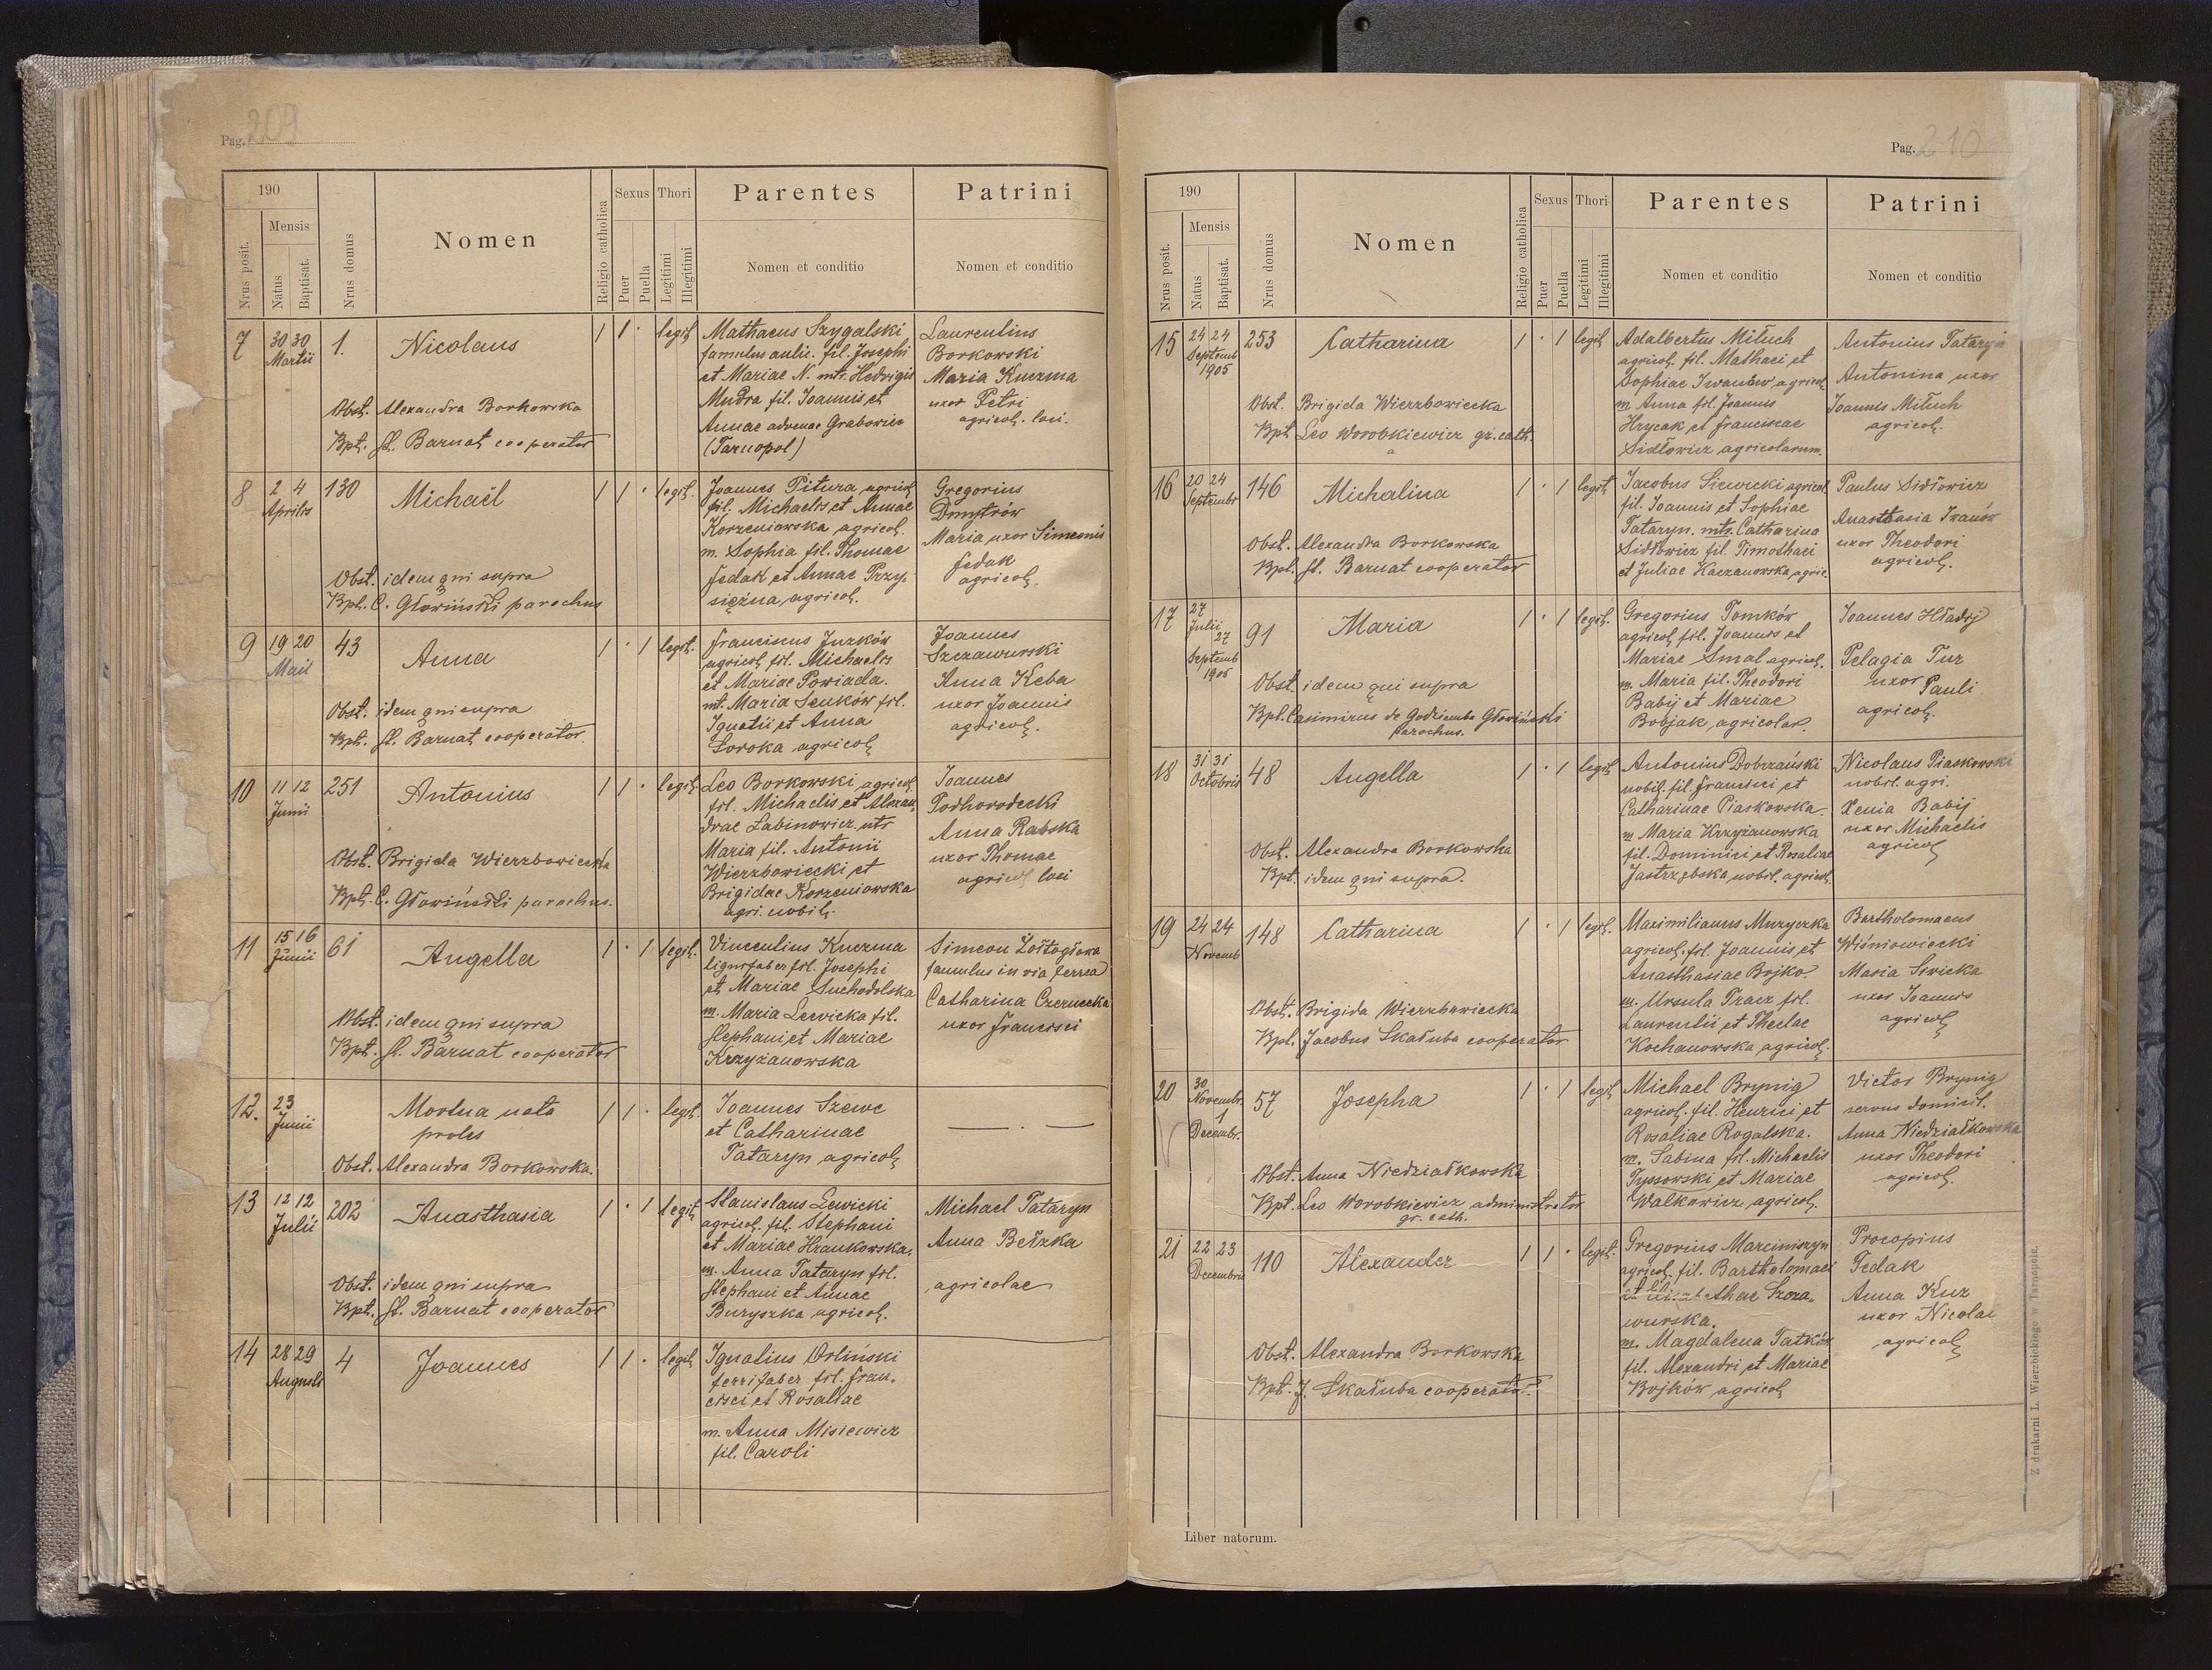 Pag. 209
190
Mensis
Nrus posit.
Natus
Baptisat.
Nrus domus
Nomen
Religio catholica
Sexus
Puer
Puella
Thori
Legitimi
Illegitimi
Parentes
Nomen et conditio
Patrini
Nomen et conditio
7
30 30
Martii
1.
Nicolaus
1 1 · legit.
Obst. Alexandra Borkowska
Bpt. St. Barnat cooperator
Mathaeus Szygalski
famulus aulic. fil. Josephi
et Mariae N. mtr. Hedvigis
Mudra fil. Joannis et
Annae advenae Grabowiec
(Tarnopol)
Laurentius
Borkowski
Maria Kuczma
uxor Petri
agricol. loci.
8
2 4
Aprilis
130
Michaël
1 1 · legit.
Obst. idem qui supra
Bpt. C. Głowiński parochus
Joannes Pitura agricol.
fil. Michaelis et Annae
Korzeniowska agricol.
m. Sophia fil. Thomae
Fedak et Annae Przy,
siężna, agricol.
Gregorius
Dmytrów
Maria uxor Simeonis
Fedak
agricol.
9
19 20
Maii
43
Anna
1 · 1 legit.
Obst. idem qui supra
Bpt. St. Barnat cooperator.
Franciscus Jurków
agricol. fil. Michaelis
et Mariae Powiada.
mt. Maria Senków fil.
Ignatii et Anna
Soroka agricol.
Joannes
Szczawurski
Anna Keba
uxor Joannis
agricol.
10
11 12
Junii
251
Antonius
1 1 · legit.
Obst. Brigida Wierzbowiecka
Bpt. C. Głowiński parochus.
Leo Borkowski agricol.
fil. Michaelis et Alexan,
drae Łabinowicz. mtr
Maria fil. Antonii
Wierzbowiecki et
Brigidae Korzeniowska
agri. nobil.
Joannes
Podhorodecki
Anna Rabska
uxor Thomae
agricol. loci
11
15 16
Junii
61
Angella
1 · 1 legit.
Obst. idem qui supra
Bpt. St. Barnat cooperator
Vincentius Kuczma
lignifaber fil. Josephi
et Mariae Suchodolska
m. Maria Lewicka fil.
Stephani et Mariae
Krzyżanowska
Simeon Żółtogłowa
famulus in via ferrea
Catharina Czernecka
uxor Francisci
12.
23
Junii
Mortua nata
proles
1 1 · legit.
Obst. Alexandra Borkowska.
Joannes Szewc
et Catharinae
Tataryn agricol.
— . —
13
12 12
Julii
202
Anasthasia
1 · 1 legit.
Obst. idem qui supra
Bpt. St. Barnat cooperator
Stanislaus Lewicki
agricol. fil. Stephani
et Mariae Hrankowska,
m. Anna Tataryn fil.
Stephani et Annae
Buryszka agricol.
Michael Tataryn
Anna Bełzka
agricolae
14
28 29
Augusti
4
Joannes
1 1 · legit.
Ignatius Orliński
ferrifaber fil. Fran,
cisci et Rosaliae
m. Anna Misiewicz
fil. Caroli
Pag. 210
190
Mensis
Nrus posit.
Natus
Baptisat.
Nrus domus
Nomen
Religio catholica
Sexus
Puer
Puella
Thori
Legitimi
Illegitimi
Parentes
Nomen et conditio
Patrini
Nomen et conditio
15
24 24
Septemb
1905
253
Catharina
1 · 1 legit.
Obst. Brigida Wierzbowiecka
Bpt. Leo Worobkiewicz gr. cath.
Adalbertus Miłuch
agricol. fil. Mathaei et
Sophiae Iwanów, agricol.
m. Anna fil. Joannis
Hrycak et Franciscae
Sidłowicz agricolarum.
Antonius Tataryn
Antonina uxor
Joannis Miłuch
agricol.
16
20 24
Septembr
146
Michalina
1 · 1 legit.
Obst. Alexandra Borkowska
Bpt. St. Barnat cooperator
Jacobus Siewicki agricol.
fil. Joannis et Sophiae
Tataryn. mtr. Catharina
Sidłowicz fil. Timothaei
et Juliae Kaczanowska, agric.
Paulus Sidłowicz
Anasthasia Iwanów
uxor Theodori
agricol.
17
27
Julii
27
Septemb
1905
91
Maria
1 · 1 legit.
Obst. idem qui supra
Bpt. Casimirus de Godziemba Głowiński
parochus.
Gregorius Tomków
agricol. fil. Joannis et
Mariae Smal agricol.
m. Maria fil. Theodori
Babij et Mariae
Bobjak agricolar.
Joannes Hładij
Pelagia Tur
uxor Pauli
agricol.
18
31 31
Octobris
48
Angella
1 · 1 legit.
Obst. Alexandra Borkowska
Bpt. idem qui supra.
Antonius Dobrzański
nobil. fil. Francisci et
Catharinae Piaskowska.
m Maria Krzyżanowska
fil. Dominici et Rosaliae
Jastrzębska nobil. agricol.
Nicolaus Piaskowski
nobil. agri.
Xenia Babij
uxor Michaelis
agricol.
19
24 24
Novemb
148
Catharina
1 · 1 legit.
Obst. Brigida Wierzbowiecka
Bpt. Jacobus Skałuba cooperator
Maximilianus Muryszka
agricol. fil. Joannis et
Anasthasiae Bojko
m. Ursula Tracz fil.
Laurentii et Theclae
Kochanowska agricol.
Bartholomaeus
Wiśniowiecki
Maria Siwicka
uxor Joannis
agricol.
20
30
Novembr.
1
Decembr.
57
Josepha
1 · 1 legit.
Obst. Anna Niedziałkowska
Bpt. Leo Worobkiewicz administrator
gr. cath.
Michael Brynig
agricol. fil. Henrici et
Rosaliae Rogalska.
m. Sabina fil. Michaelis
Tyssowski et Mariae
Walkowicz agricol.
Victor Brynig
servus dominil.
Anna Niedziałkowska
uxor Theodori
agricol.
21
22 23
Decembris
110
Alexander
1 1 · legit.
Obst. Alexandra Borkowska
Bpt. J. Skałuba cooperator.
Gregorius Marciniszyn
agricol. fil. Bartholomaei
Szcza,
wurska.
m. Magdalena Tatków
fil. Alexandri et Mariae
Bojków agricol.
Procopius
Fedak
Anna Kuz
uxor Nicolai
agricol.
Liber natorum.
Z drukarni L. Wierzbickiego w Tarnopolu.